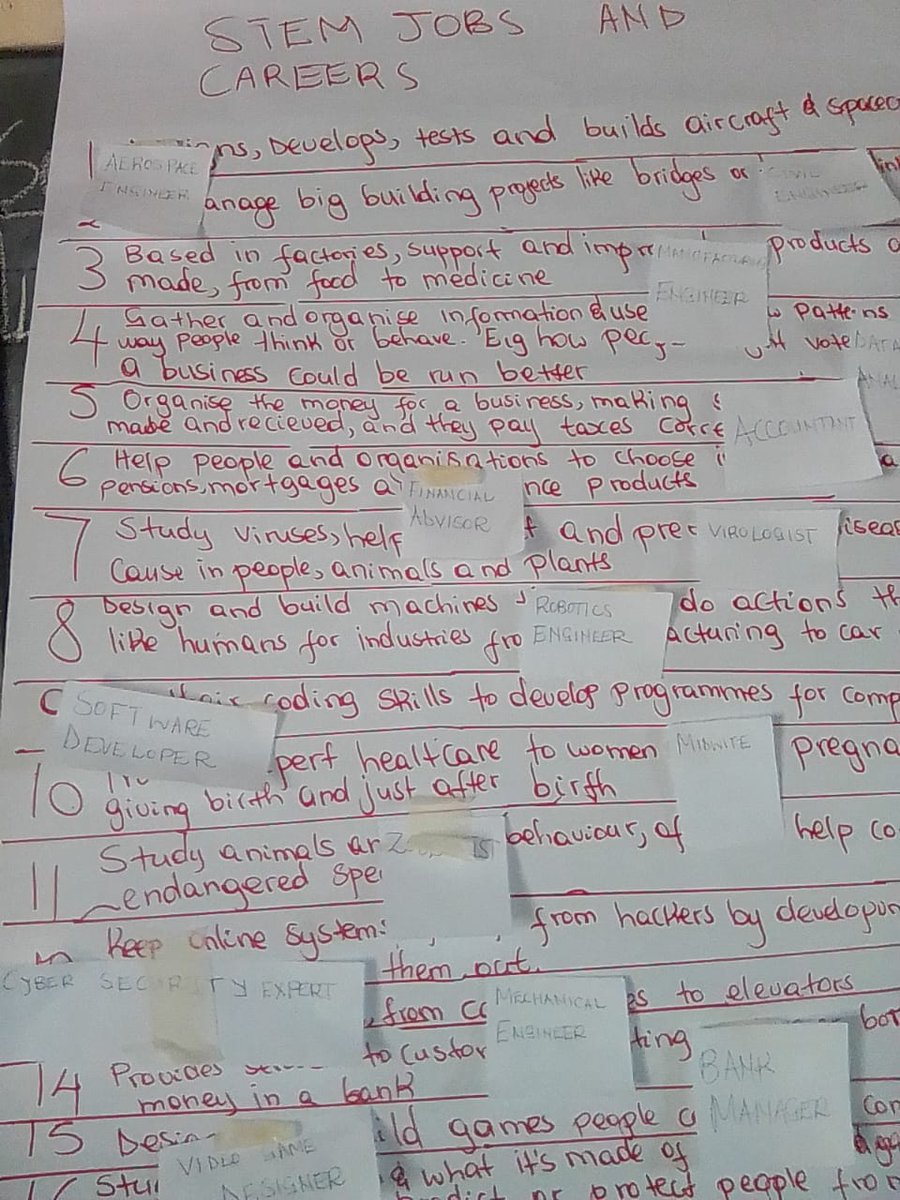 STEM JOBS AND
CAREERS
1 ns, Develops, tests and builds aircraft & spacec
AEROSPACE
ENGINEER
anage big building projects like bridges or
CIVIL
ENGINEER
3 Based in factories, support and impr products
made, from food to medicine
MANUFACTURING
ENGINEER
4 Gather and organise information & use patterns
way people think or behave. E.g how vote
a business could be run better
DATA
ANAL
5 Organise the money for a business, making
made and recieved, and they pay taxes corre
ACCOUNTANT
6 Help people and organisations to choose i
pensions, mortgages a nce products
FINANCIAL
ADVISOR
7 Study viruses, help and pre iseas
cause in people, animals and plants
VIROLOGIST
8 Design and build machines do actions th
like humans for industries fro acturing to car
ROBOTICS
ENGINEER
their coding skills to develop programmes for comp
SOFTWARE
DEVELOPER
10 pert healtcare to women pregna
giving birth and just after birth
MIDWIFE
11 Study animals an behaviour, of help co
endangered spe
Keep online systems from hackers by developin
them out.
CYBER SECURITY EXPERT
, from co es to elevators
MECHANICAL
ENGINEER
14 Provides to custom ting bor
money in a bank
BANK
MANAGER
15 Desi ild games people c con
VIDEO GAME
DESIGNER
16 Stu & what it's made of
or protect people from